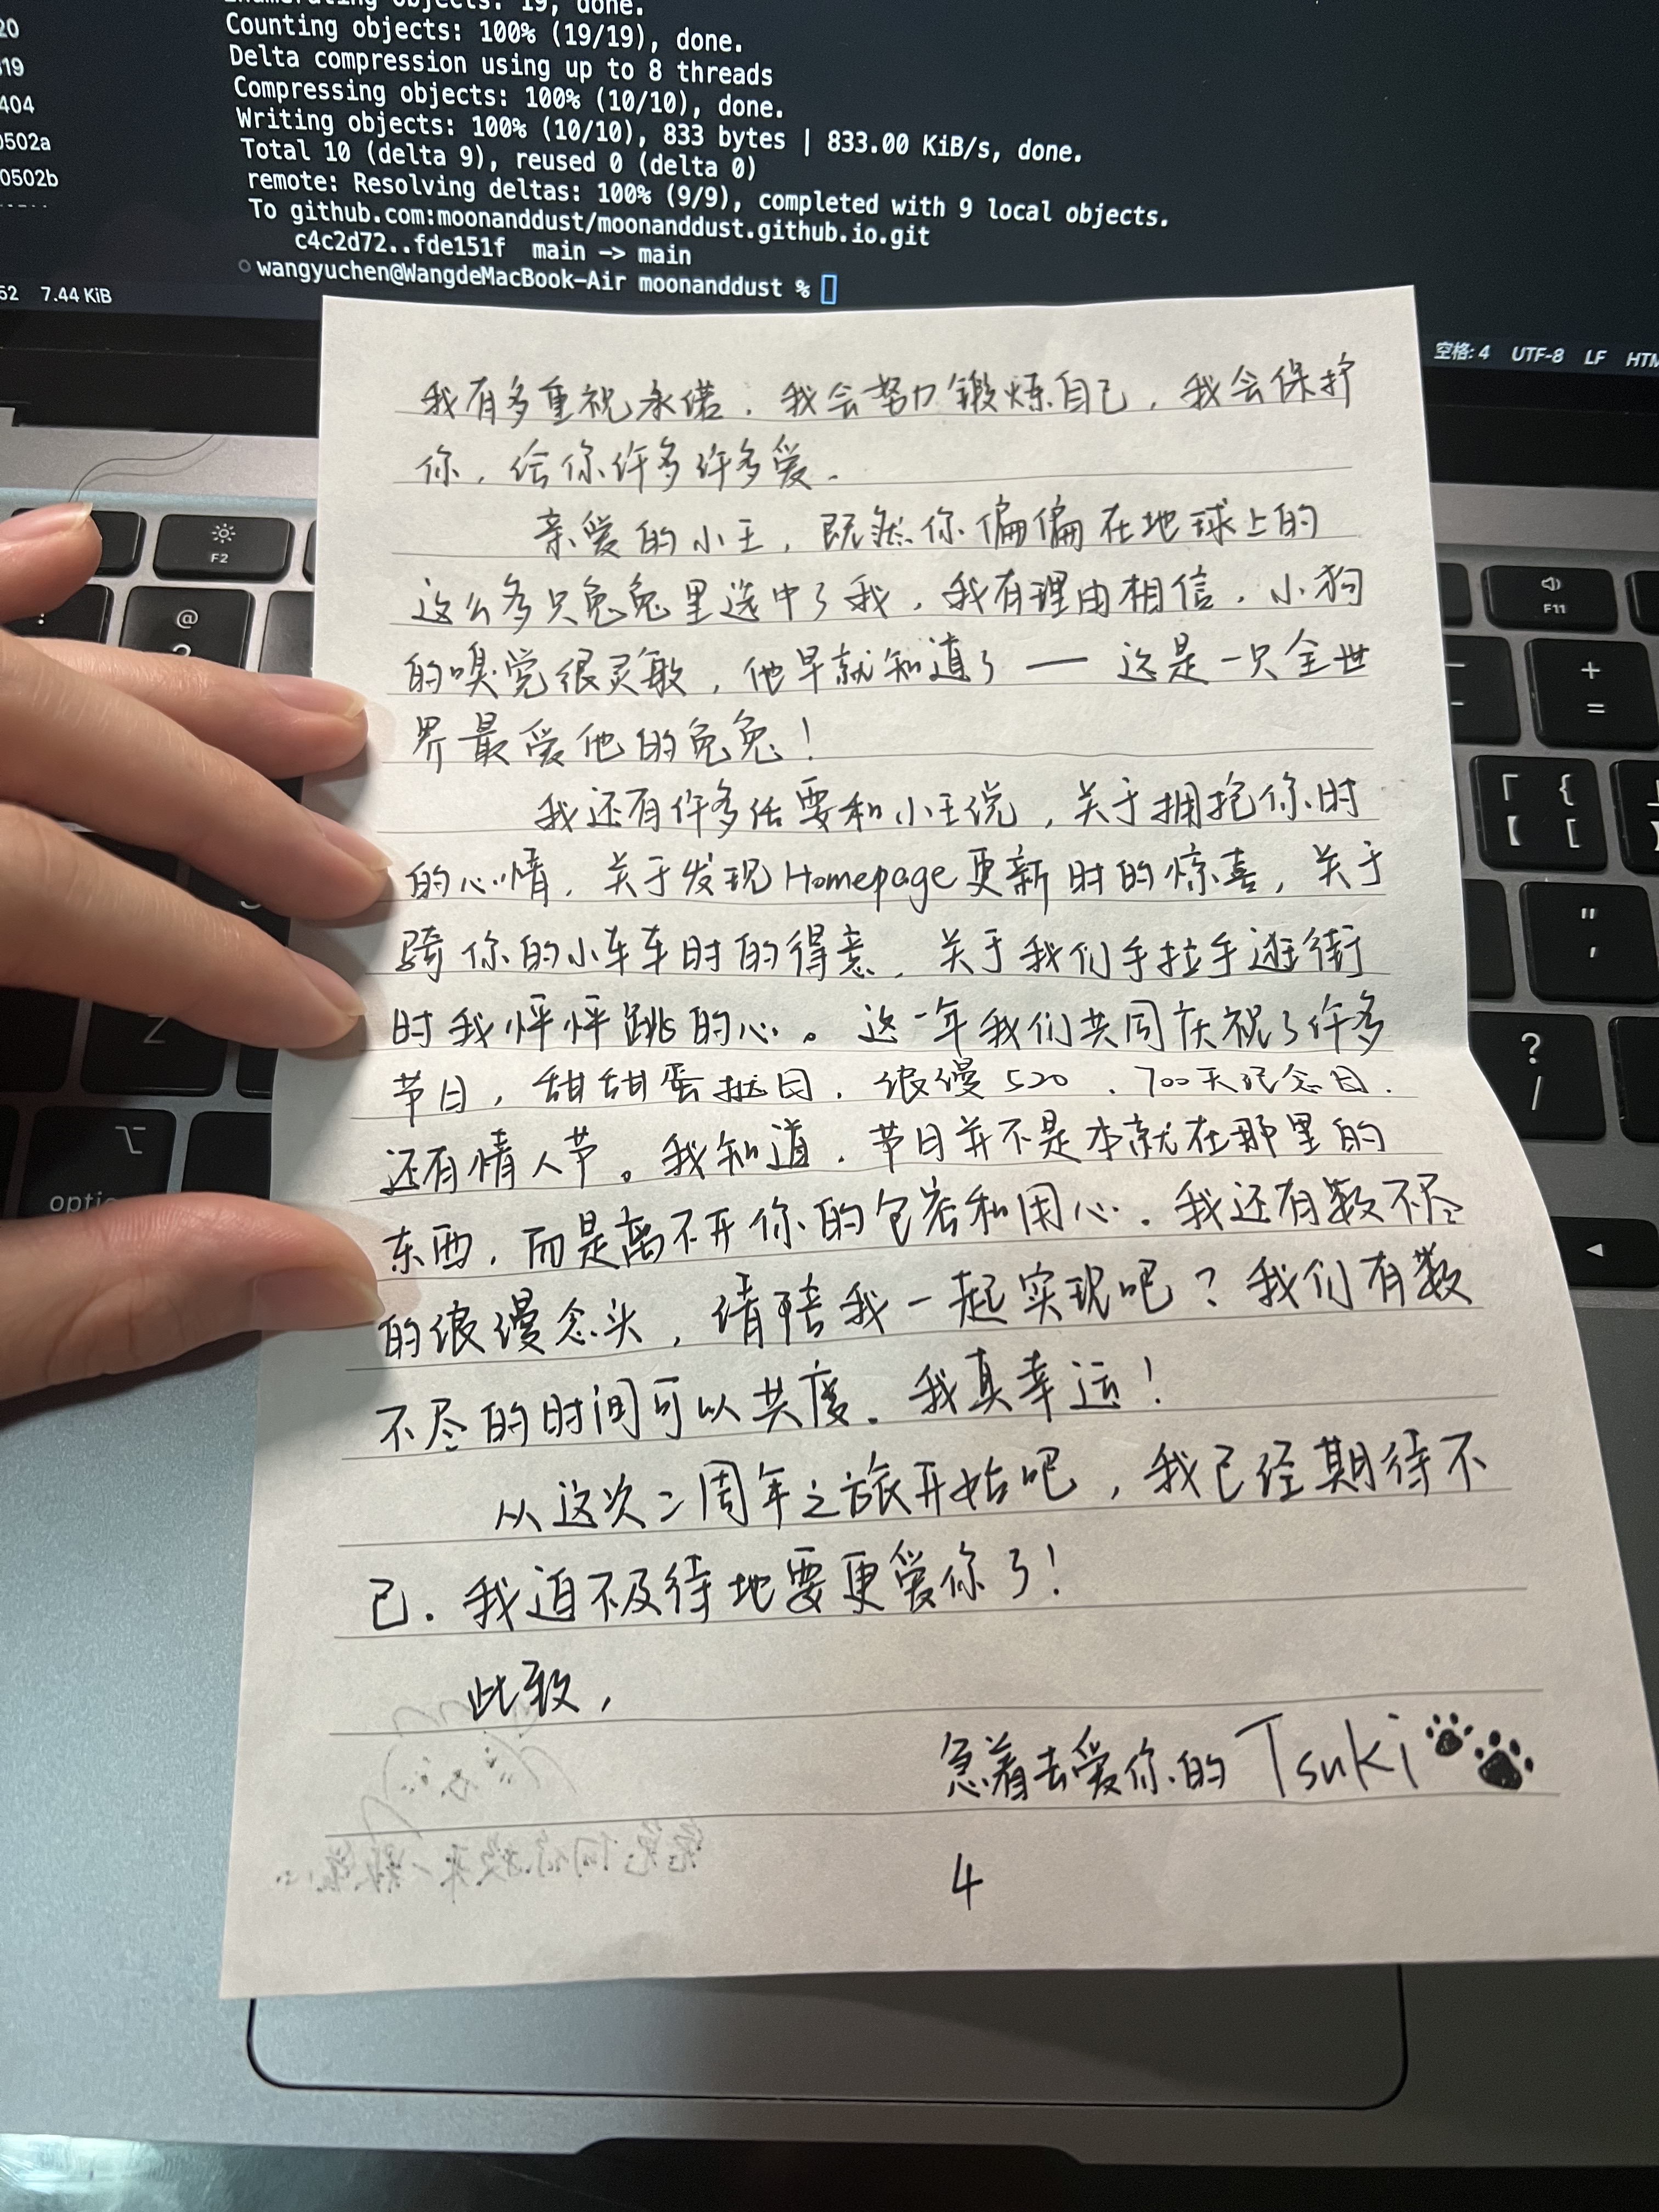 Enumerating objects: 19, done.
Counting objects: 100% (19/19), done.
Delta compression using up to 8 threads
Compressing objects: 100% (10/10), done.
Writing objects: 100% (10/10), 833 bytes | 833.00 KiB/s, done.
Total 10 (delta 9), reused 0 (delta 0)
remote: Resolving deltas: 100% (9/9), completed with 9 local objects.
To github.com:moonanddust/moonanddust.github.io.git
c4c2d72..fde151f main -> main
wangyuchen@WangdeMacBook-Air moonanddust %
20
319
404
0502a
0502b
52 7.44 KiB
空格: 4 UTF-8 LF HTM
F2
F11
@
2
+
=
{
[
"
'
?
/
Z
optio
我有多重视承诺．我会努力锻炼自己，我会保护
你，给你许多许多爱．
亲爱的小王，既然你偏偏在地球上的
这么多只兔兔里选中了我，我有理由相信，小狗
的嗅觉很灵敏，他早就知道了——这是一只全世
界最爱他的兔兔！
我还有许多话要和小王说，关于拥抱你时
的心情，关于发现Homepage更新时的惊喜，关于
骑你的小车车时的得意，关于我们手拉手逛街
时我怦怦跳的心。这一年我们共同庆祝了许多
节日，甜甜蛋挞日，浪漫520，700天纪念日．
还有情人节。我知道，节日并不是本就在那里的
东西，而是离不开你的包容和用心．我还有数不尽
的浪漫念头，请陪我一起实现吧？我们有数
不尽的时间可以共度．我真幸运！
从这次二周年之旅开始吧，我已经期待不
已．我迫不及待地要更爱你了！
此致，
急着去爱你的Tsuki
4